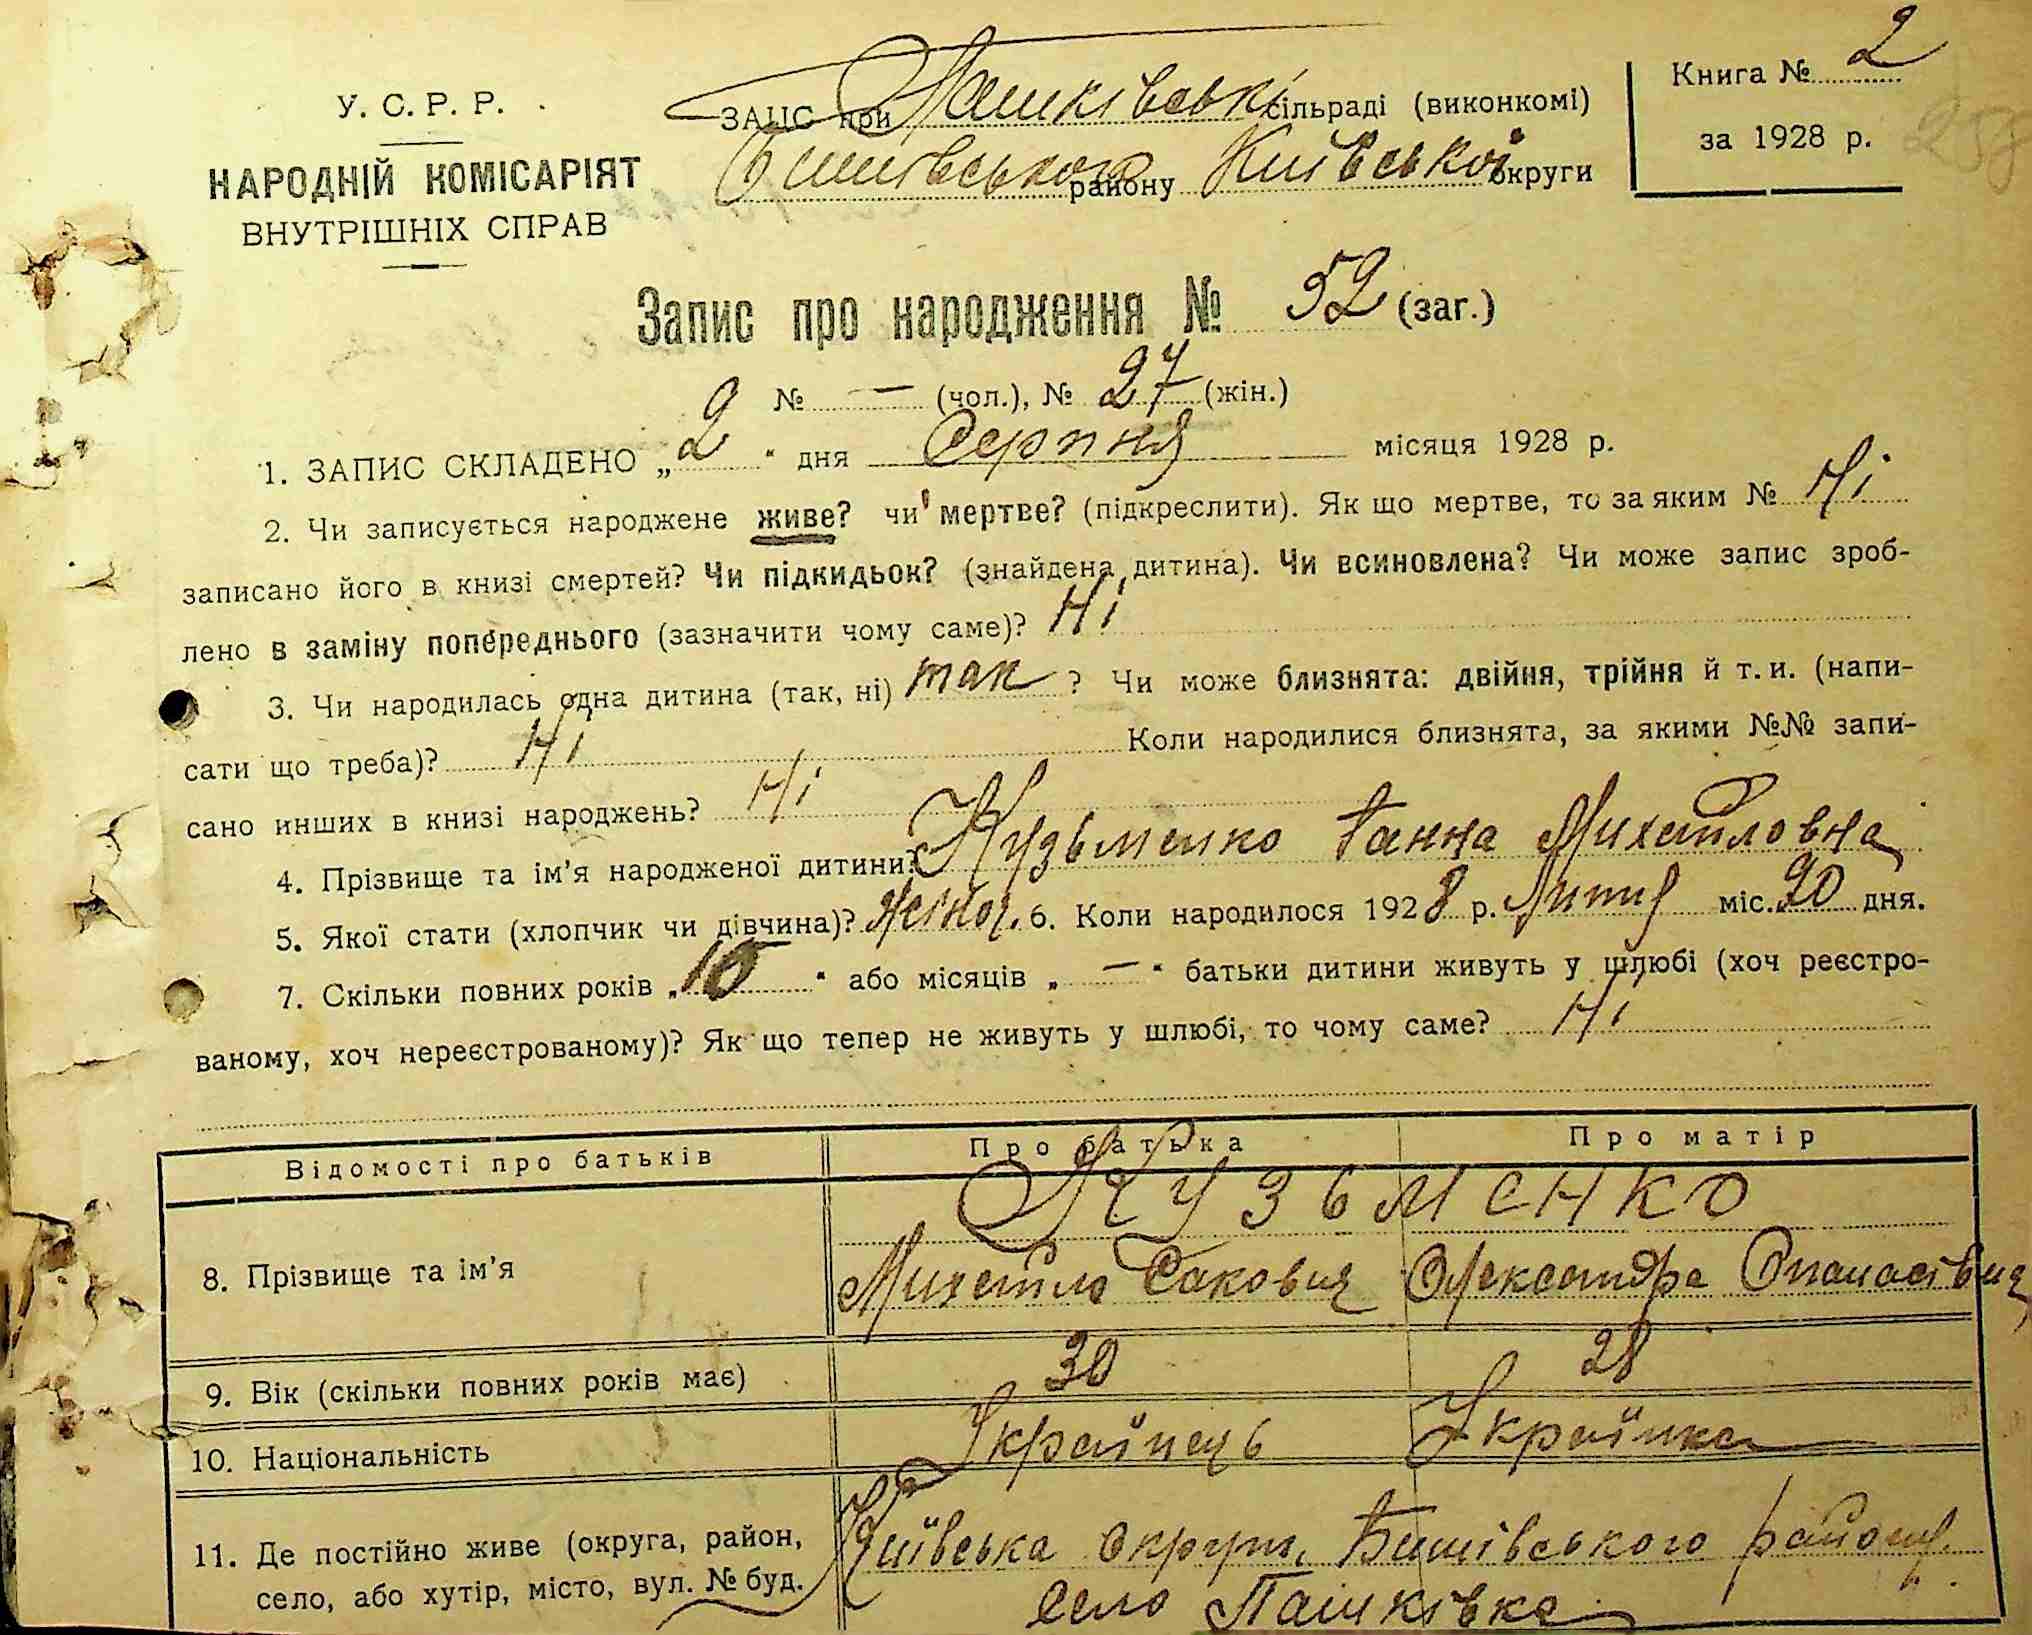 Книга № 2
за 1928 р.
258
У. С. Р. Р.
НАРОДНІЙ КОМІСАРІЯТ
ВНУТРІШНІХ СПРАВ
ЗАГС при Пашківські сільраді (виконкомі)
Бишівського району Київської округи
Запис про народження № 52 (заг.)
№ — (чол.), № 27 (жін.)
1. ЗАПИС СКЛАДЕНО „2“ дня Серпня місяця 1928 р.
2. Чи записується народжене живе? чи мертве? (підкреслити). Як що мертве, то за яким № Ні
записано його в книзі смертей? Чи підкидьок? (знайдена дитина). Чи всиновлена? Чи може запис зроб-
лено в заміну попереднього (зазначити чому саме)? Ні
3. Чи народилась одна дитина (так, ні) так ? Чи може близнята: двійня, трійня й т. и. (напи-
сати що треба)? Ні Коли народилися близнята, за якими №№ запи-
сано инших в книзі народжень? Ні
4. Прізвище та ім’я народженої дитини? Кузьменко Ганна Михайловна
5. Якої стати (хлопчик чи дівчина)? Жіноч. 6. Коли народилося 1928 р. Липня міс. 20 дня.
7. Скільки повних років „10“ або місяців „—“ батьки дитини живуть у шлюбі (хоч реєстро-
ваному, хоч нереєстрованому)? Як що тепер не живуть у шлюбі, то чому саме? Ні
Відомості про батьків Про батька Про матір
КУЗЬМЕНКО
8. Прізвище та ім’я Михайло Сакович Олександра Опанасівна
9. Вік (скільки повних років має) 30 28
10. Національність Українець Українка
11. Де постійно живе (округа, район, Київська округи, Бишівського району.
село, або хутір, місто, вул. № буд. село Пашківка